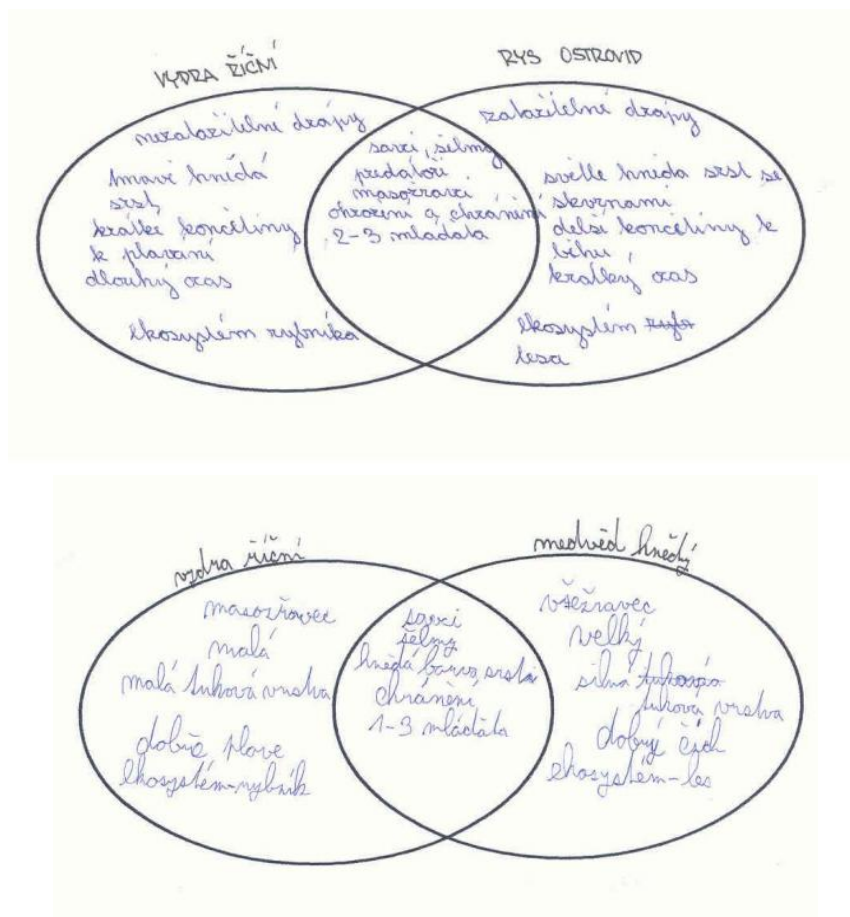 VYDRA ŘÍČNÍ
RYS OSTROVID
nezatažitelné drápy
tmavě hnědá
srst
krátké končetiny
k plavání
dlouhý ocas
ekosystém rybníka
savci, šelmy
predátoři
masožravci
ohrožení a chránění
2-3 mláďata
zatažitelné drápy
světle hnědá srst se
skvrnami
delší končetiny k
běhu
krátký ocas
ekosystém rybn
lesa
vydra říční
medvěd hnědý
masožravec
malá
malá tuková vrstva
dobře plave
ekosystém-rybník
savci
šelmy
hnědá barva srsti
chránění
1-3 mláďata
všežravec
velký
silná
tuková vrstva
dobrý čich
ekosystém-les